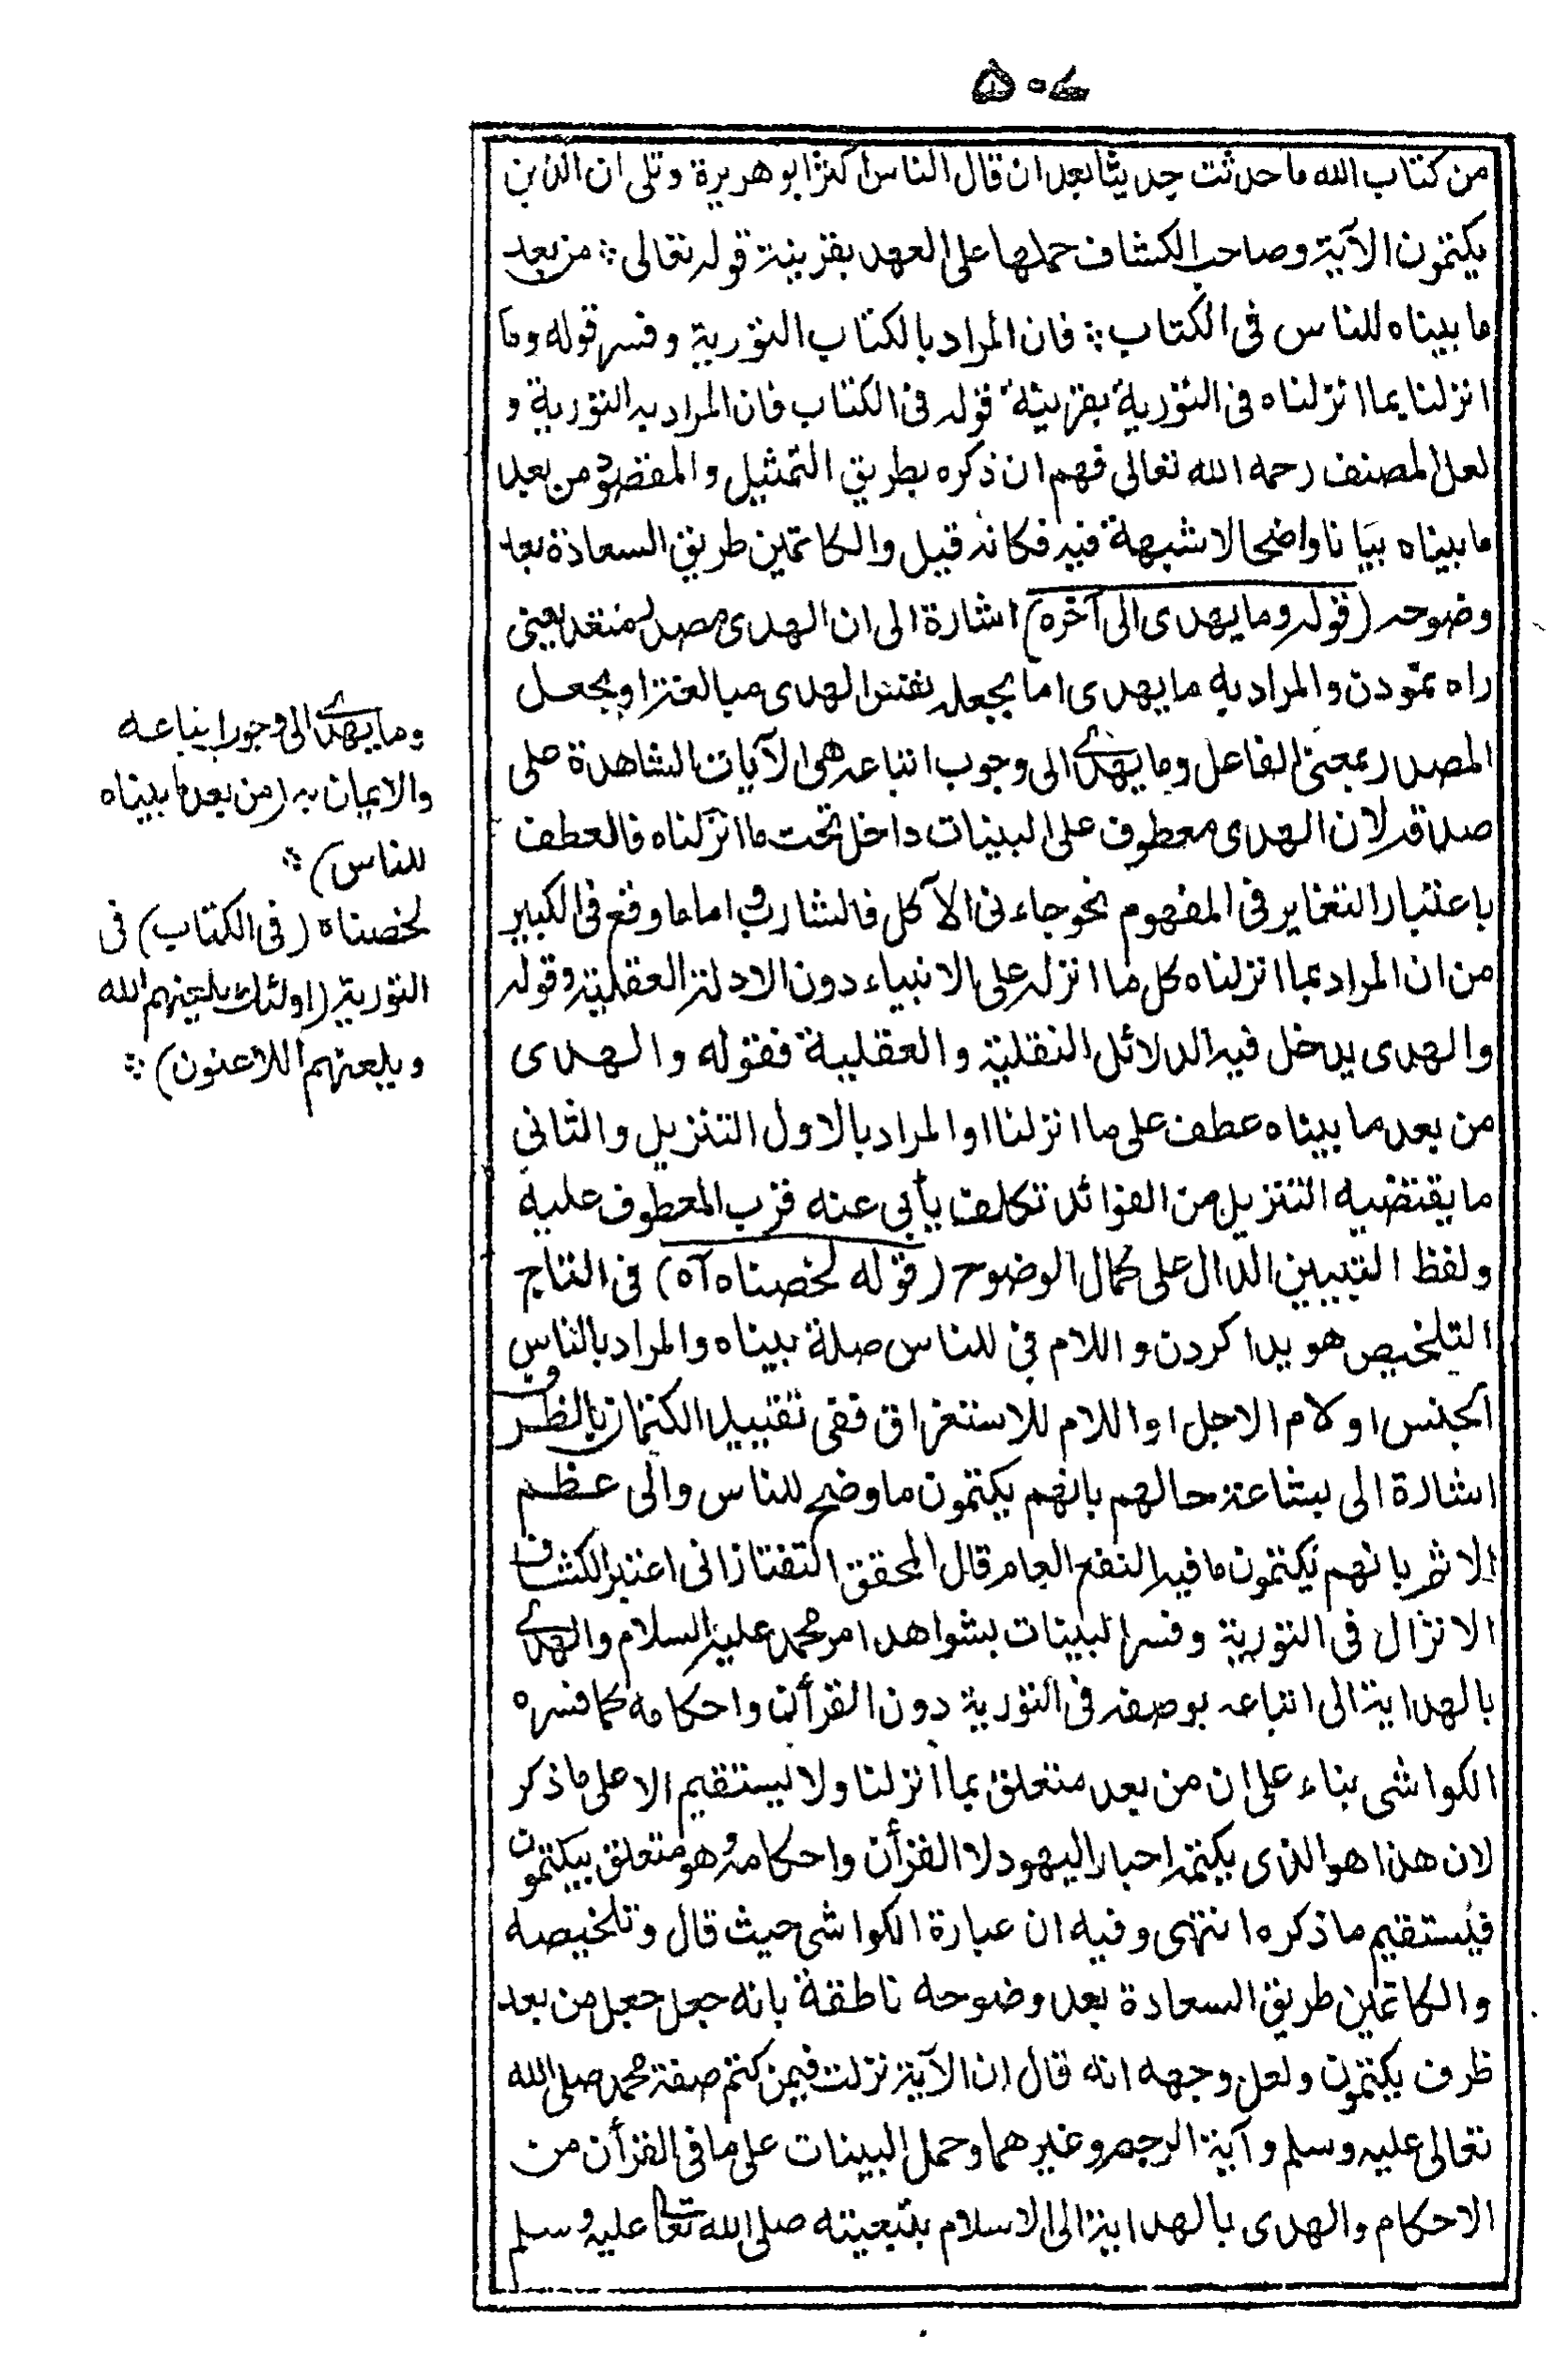 ٥٠٤
من كتاب الله ما حدثت حديثا بعد ان قال الناس اكثر ابو هريرة وتلى ان الذين
يكتمون الآية وصاحب الكشاف حملها على العهد بقرينة قوله تعالى ؞ من بعد
ما بيناه للناس فى الكتاب ؞ فان المراد بالكتاب التورية وفسر قوله وما
انزلنا بما انزلناه فى التورية بقرينة قوله فى الكتاب فان المراد به التورية و
لعل المصنف رحمه الله تعالى فهم ان ذكره بطريق التمثيل والمقصود من بعد
ما بيناه بيانا واضحا لا شبهة فيه فكانه قيل والكاتمين طريق السعادة بعد
وضوحه (قوله وما يهدى الى آخره) اشارة الى ان الهدى مصدر متعد بمعنى
راه نمودن والمراد به ما يهدى اما بجعله نفس الهدى مبالغة او بجعل
المصدر بمعنى الفاعل وما يهدى الى وجوب اتباعه هى الآيات الشاهدة على
صدقه لان الهدى معطوف على البينات داخل تحت ما انزلناه فالعطف
باعتبار التغاير فى المفهوم نحو جاءنى الآكل فالشارب واما ما وقع فى الكبير
من ان المراد بما انزلناه كل ما انزله على الانبياء دون الادلة العقلية وقوله
والهدى يدخل فيه الدلائل النقلية والعقلية فقوله والهدى
من بعد ما بيناه عطف على ما انزلنا او المراد بالاول التنزيل والثانى
ما يقتضيه التنزيل من الفوائد تكلف يأبى عنه قرب المعطوف عليه
ولفظ التبيين الدال على كمال الوضوح (قوله لخصناه آه) فى التاج
التلخيص هويدا كردن واللام فى للناس صلة بيناه والمراد بالناس
الجنس او لام الاجل او اللام للاستغراق ففى تقييد الكتمان بالظرف
اشارة الى بشاعة حالهم بانهم يكتمون ما وضح للناس والى عظم
الاثم بانهم يكتمون ما فيه النفع العام قال المحقق التفتازانى اعتبر الكشاف
الانزال فى التورية وفسر البينات بشواهد امر محمد عليه السلام والهدى
بالهداية الى اتباعه بوصفه فى التورية دون القرأن واحكامه كما فسره
الكواشى بناء على ان من بعد متعلق بما انزلنا ولا يستقيم الا على ما ذكر
لان هذا هو الذى يكتمه احبار اليهود لا القرأن واحكامه وهو متعلق بيكتمون
فيستقيم ما ذكره انتهى وفيه ان عبارة الكواشى حيث قال وتلخيصه
والكاتمين طريق السعادة بعد وضوحه ناطقة بانه جعل من بعد
ظرف يكتمون ولعل وجهه انه قال ان الآية نزلت فيمن كتم صفة محمد صلى الله
تعالى عليه وسلم وآية الرجم وغيرهما وحمل البينات على ما فى القرأن من
الاحكام والهدى بالهداية الى الاسلام بتبعيته صلى الله تعالى عليه وسلم
وما يهدى الى وجوب اتباعه
والايمان به (من بعد ما بيناه
للناس) ؞
لخصناه (فى الكتاب) فى
التورية (اولئك يلعنهم الله
ويلعنهم اللاعنون) ؞